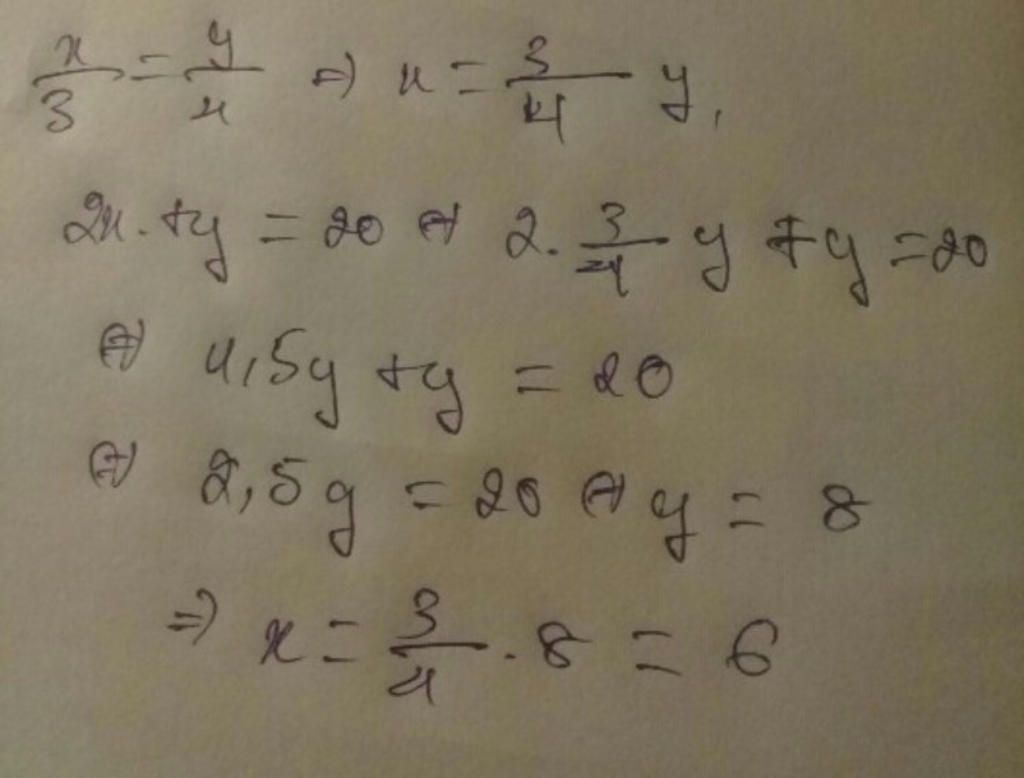 x/3 = y/4 ⇒ x = 3/4 y,
2x + y = 20 ⇔ 2. 3/4 y + y = 20
⇔ 1,5y + y = 20
⇔ 2,5y = 20 ⇔ y = 8
⇒ x = 3/4 . 8 = 6